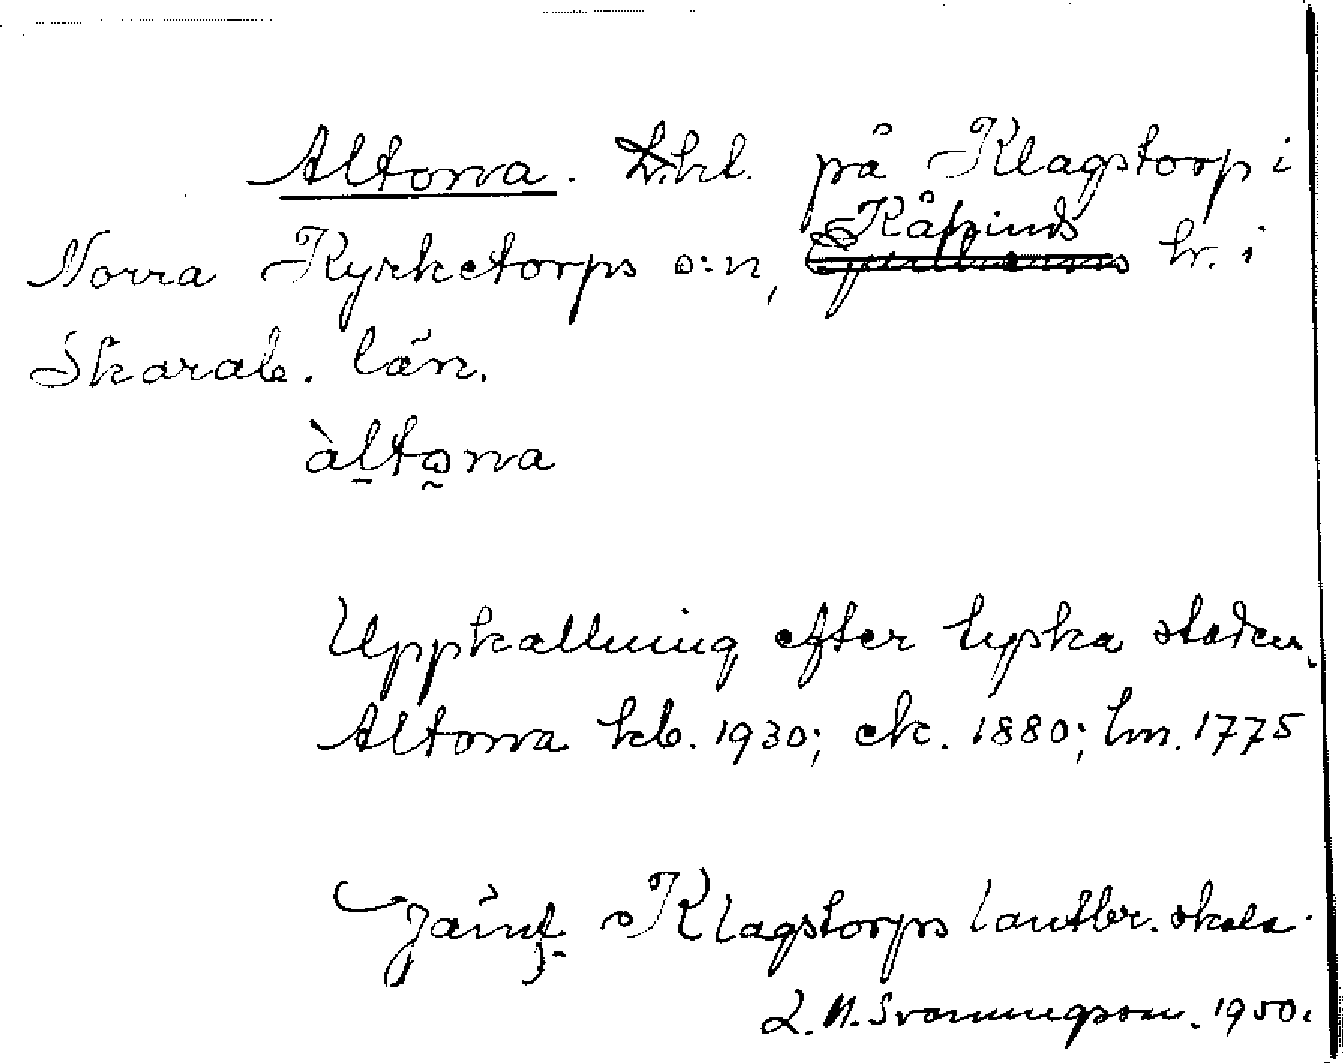 Altona. Lht. på Klagstorp i
Norra Kyrketorps s:n, Kåkinds hr. i
Skarab. län.
àltona
Uppkallning efter tyska staden.
Altona kb. 1930; ek. 1880; lm. 1775
Jämf. Klagstorps lantbr. skola.
L. N. Svanungsson. 1950.